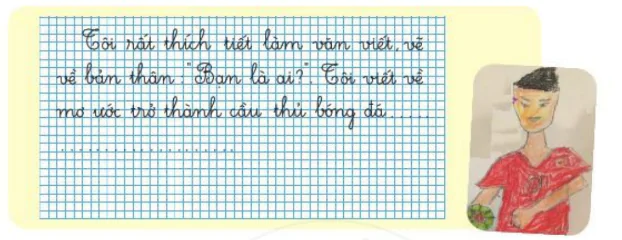 Tôi rất thích tiết làm văn viết, vẽ
về bản thân: "Bạn là ai?". Tôi viết về
mơ ước trở thành cầu thủ bóng đá.....
....................